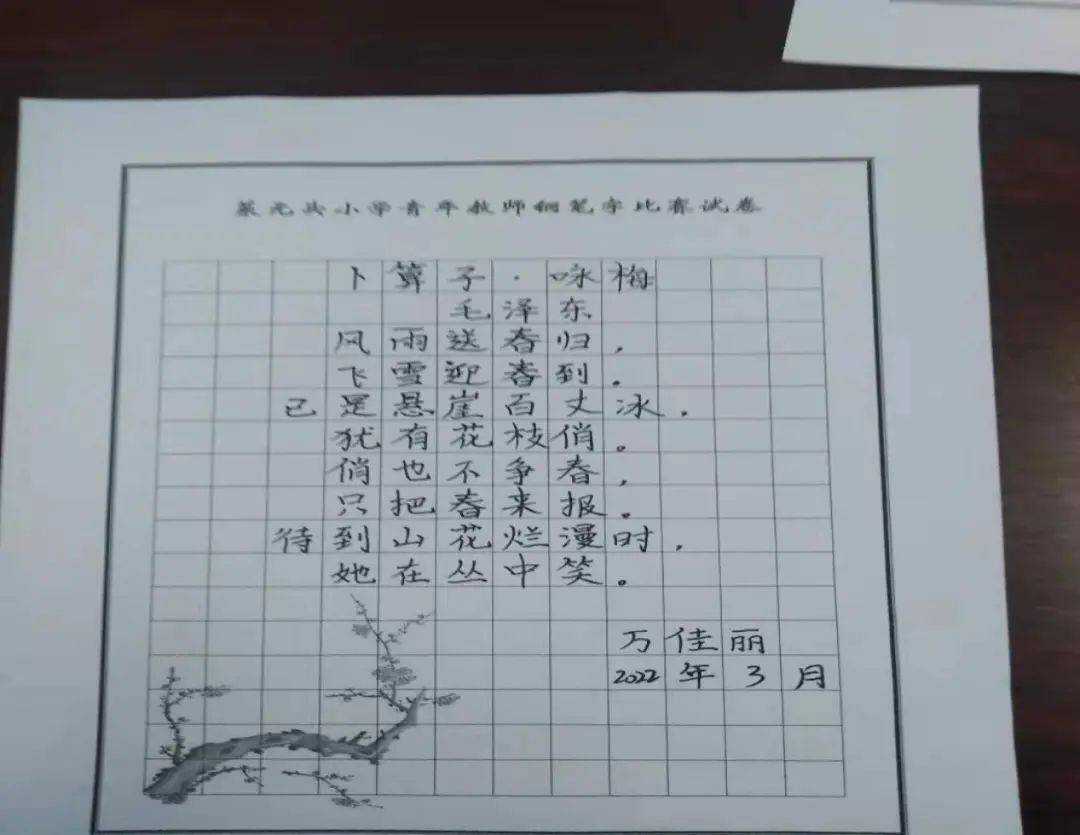 小学青年教师钢笔字比赛试卷
卜算子·咏梅
毛泽东
风雨送春归，
飞雪迎春到。
已是悬崖百丈冰，
犹有花枝俏。
俏也不争春，
只把春来报。
待到山花烂漫时，
她在丛中笑。
万佳丽
2022年3月